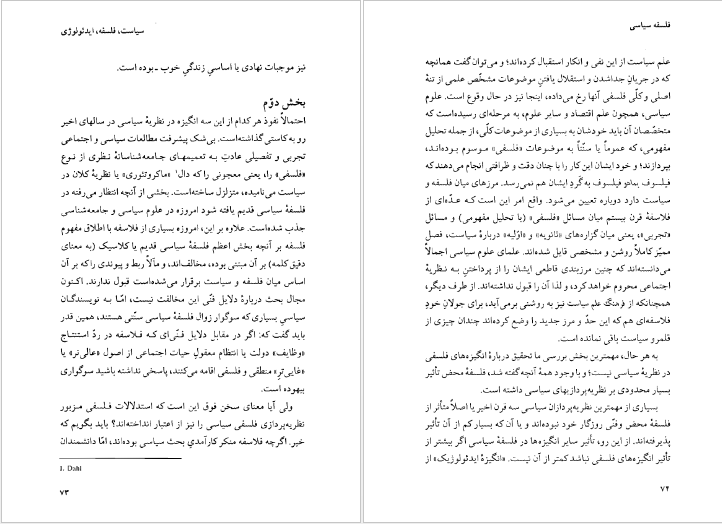 سیاست، فلسفه، ایدئولوژی
نیز موجبات نهادی یا اساسیِ زندگیِ خوب ـ بوده است.
بخش دوّم
احتمالاً نفوذ هر کدام از این سه انگیزه در نظریهٔ سیاسی در سالهای اخیر
رو به کاستی گذاشته‌است. بی‌شک پیشرفت مطالعات سیاسی و اجتماعی
تجربی و تفصیلی عادتِ به تعمیمهای جامعه‌شناسانهٔ نظری از نوع
«فلسفی» را، یعنی معجونی را که دال¹ «ماکروتئوری» یا نظریهٔ کلان در
سیاست می‌نامیده، متزلزل ساخته‌است. بخشی از آنچه انتظار می‌رفته در
فلسفهٔ سیاسی قدیم یافته شود امروزه در علوم سیاسی و جامعه‌شناسی
جذب شده‌است. علاوه بر این، امروزه بسیاری از فلاسفه با اطلاق مفهوم
فلسفه بر آنچه بخش اعظم فلسفهٔ سیاسی قدیم یا کلاسیک (به معنای
دقیق کلمه) بر آن مبتنی بوده، مخالف‌اند، و مآلاً ربط و پیوندی را که بر آن
اساس میان فلسفه و سیاست برقرار می‌شده‌است قبول ندارند. اکنون
مجال بحث دربارهٔ دلایل فنّی این مخالفت نیست، امّا به نویسندگان
سیاسی بسیاری که سوگوار زوال فلسفهٔ سیاسی سنّتی هستند، همین قدر
باید گفت که: اگر در مقابل دلایل فنّی‌ای که فلاسفه در ردّ استنتاج
«وظایف» دولت یا انتظام معقول حیات اجتماعی از اصول «عالی‌تر» یا
«غایی‌ترِ» منطقی و فلسفی اقامه می‌کنند، پاسخی نداشته باشید سوگواری
بیهوده است.
ولی آیا معنای سخن فوق این است که استدلالات فلسفی مزبور
نظریه‌پردازی فلسفی سیاسی را نیز از اعتبار انداخته‌اند؟ باید بگویم که
خیر. اگرچه فلاسفه منکر کارآمدیِ بحث سیاسی بوده‌اند، امّا دانشمندان
1. Dahl
۷۳
فلسفه سیاسی
علم سیاست از این نفی و انکار استقبال کرده‌اند؛ و می‌توان گفت همانچه
که در جریانِ جداشدن و استقلال یافتنِ موضوعات مشخّص علمی از تنهٔ
اصلی و کلّی فلسفی آنها رخ می‌داده، اینجا نیز در حال وقوع است. علوم
سیاسی، همچون علم اقتصاد و سایر علوم، به مرحله‌ای رسیده‌است که
متخصّصان آن باید خودشان به بسیاری از موضوعات کلّی، از جمله تحلیل
مفهومی، که عموماً یا سنّتاً به موضوعات «فلسفی» موسوم بوده‌اند،
بپردازند؛ و خود ایشان این کار را با چنان دقت و ظرافتی انجام می‌دهند که
فیلسوف بماهو فیلسوف به گَرد ایشان هم نمی‌رسد. مرزهای میان فلسفه و
سیاست دارد دوباره تعیین می‌شود. واقع امر این است که عدّه‌ای از
فلاسفهٔ قرن بیستم میان مسائل «فلسفی» (یا تحلیل مفهومی) و مسائل
«تجربی»، یعنی میان گزاره‌های «ثانویه» و «اوّلیه» دربارهٔ سیاست، فصل
ممیّز کاملاً روشن و مشخصی قایل شده‌اند. علمای علوم سیاسی اجمالاً
می‌دانسته‌اند که چنین مرزبندی قاطعی ایشان را از پرداختن به نظریهٔ
اجتماعی محروم خواهد کرد، و لذا آن را قبول نداشته‌اند. از طرف دیگر،
همچنانکه از فرهنگ علم سیاست نیز به روشنی برمی‌آید، برای جولانِ خودِ
فلاسفه‌ای هم که این حدّ و مرز جدید را وضع کرده‌اند چندان چیزی از
قلمرو سیاست باقی نمانده است.
به هر حال، مهمترین بخش بررسی ما تحقیق دربارهٔ انگیزه‌های فلسفی
در نظریهٔ سیاسی نیست؛ و با وجود همهٔ آنچه گفته شد، فلسفهٔ محض تأثیر
بسیار محدودی بر نظریه‌پردازیهای سیاسی داشته است.
بسیاری از مهمترین نظریه‌پردازان سیاسی سه قرن اخیر یا اصلاً متأثر از
فلسفهٔ محض و فنّی روزگار خود نبوده‌اند و یا آن که بسیار کم از آن تأثیر
پذیرفته‌اند. از این رو، تأثیر سایر انگیزه‌ها در فلسفهٔ سیاسی اگر بیشتر از
تأثیر انگیزه‌های فلسفی نباشد کمتر از آن نیست. «انگیزهٔ ایدئولوژیک» از
۷۴